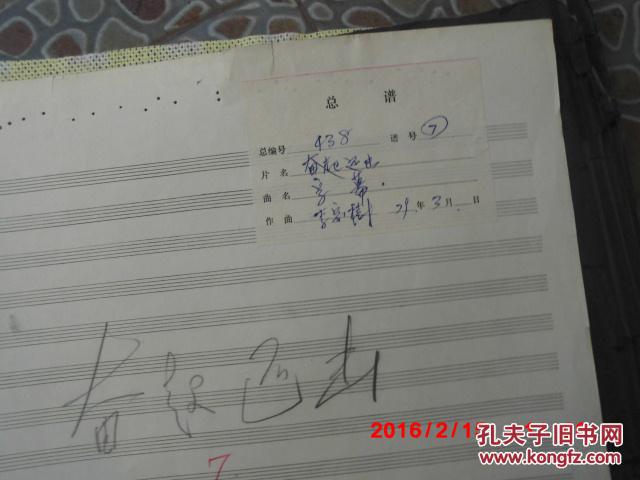 总 谱
总编号 438 谱号 ⑦
片名 奋起还击
曲名 字幕
作曲 李宝树 79年3月 日
奋起还击
7
2016/2/1
孔夫子旧书网
www.kongfz.com